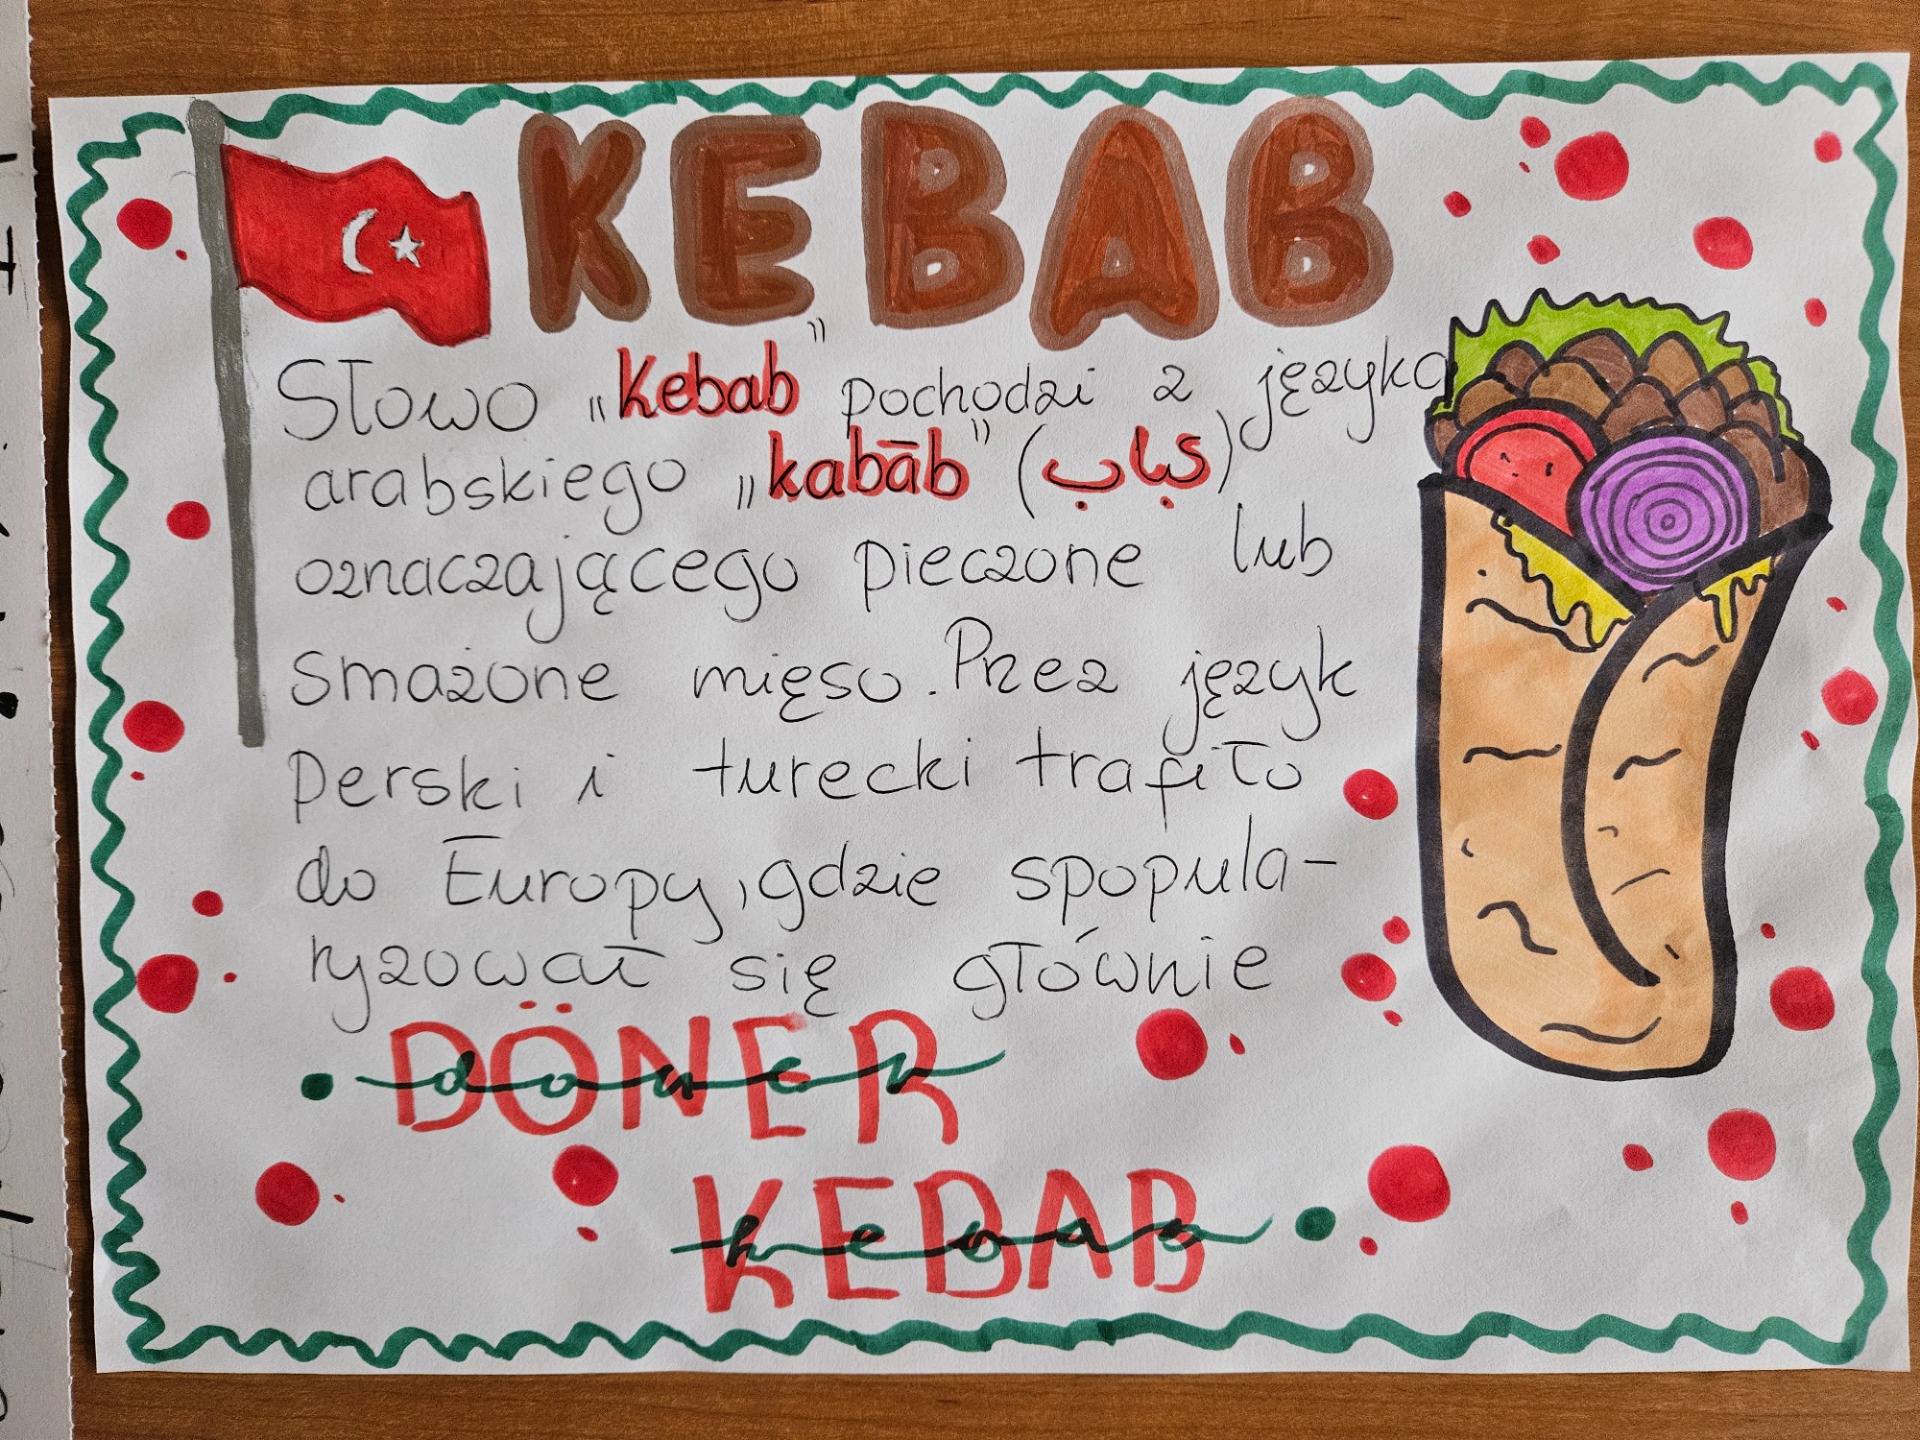 KEBAB
Słowo „Kebab” pochodzi z języka
arabskiego „kabāb” (كباب)
oznaczającego pieczone lub
smażone mięso. Przez język
perski i turecki trafiło
do Europy, gdzie spopula-
ryzował się głównie
DÖNER
doner
KEBAB
kebab